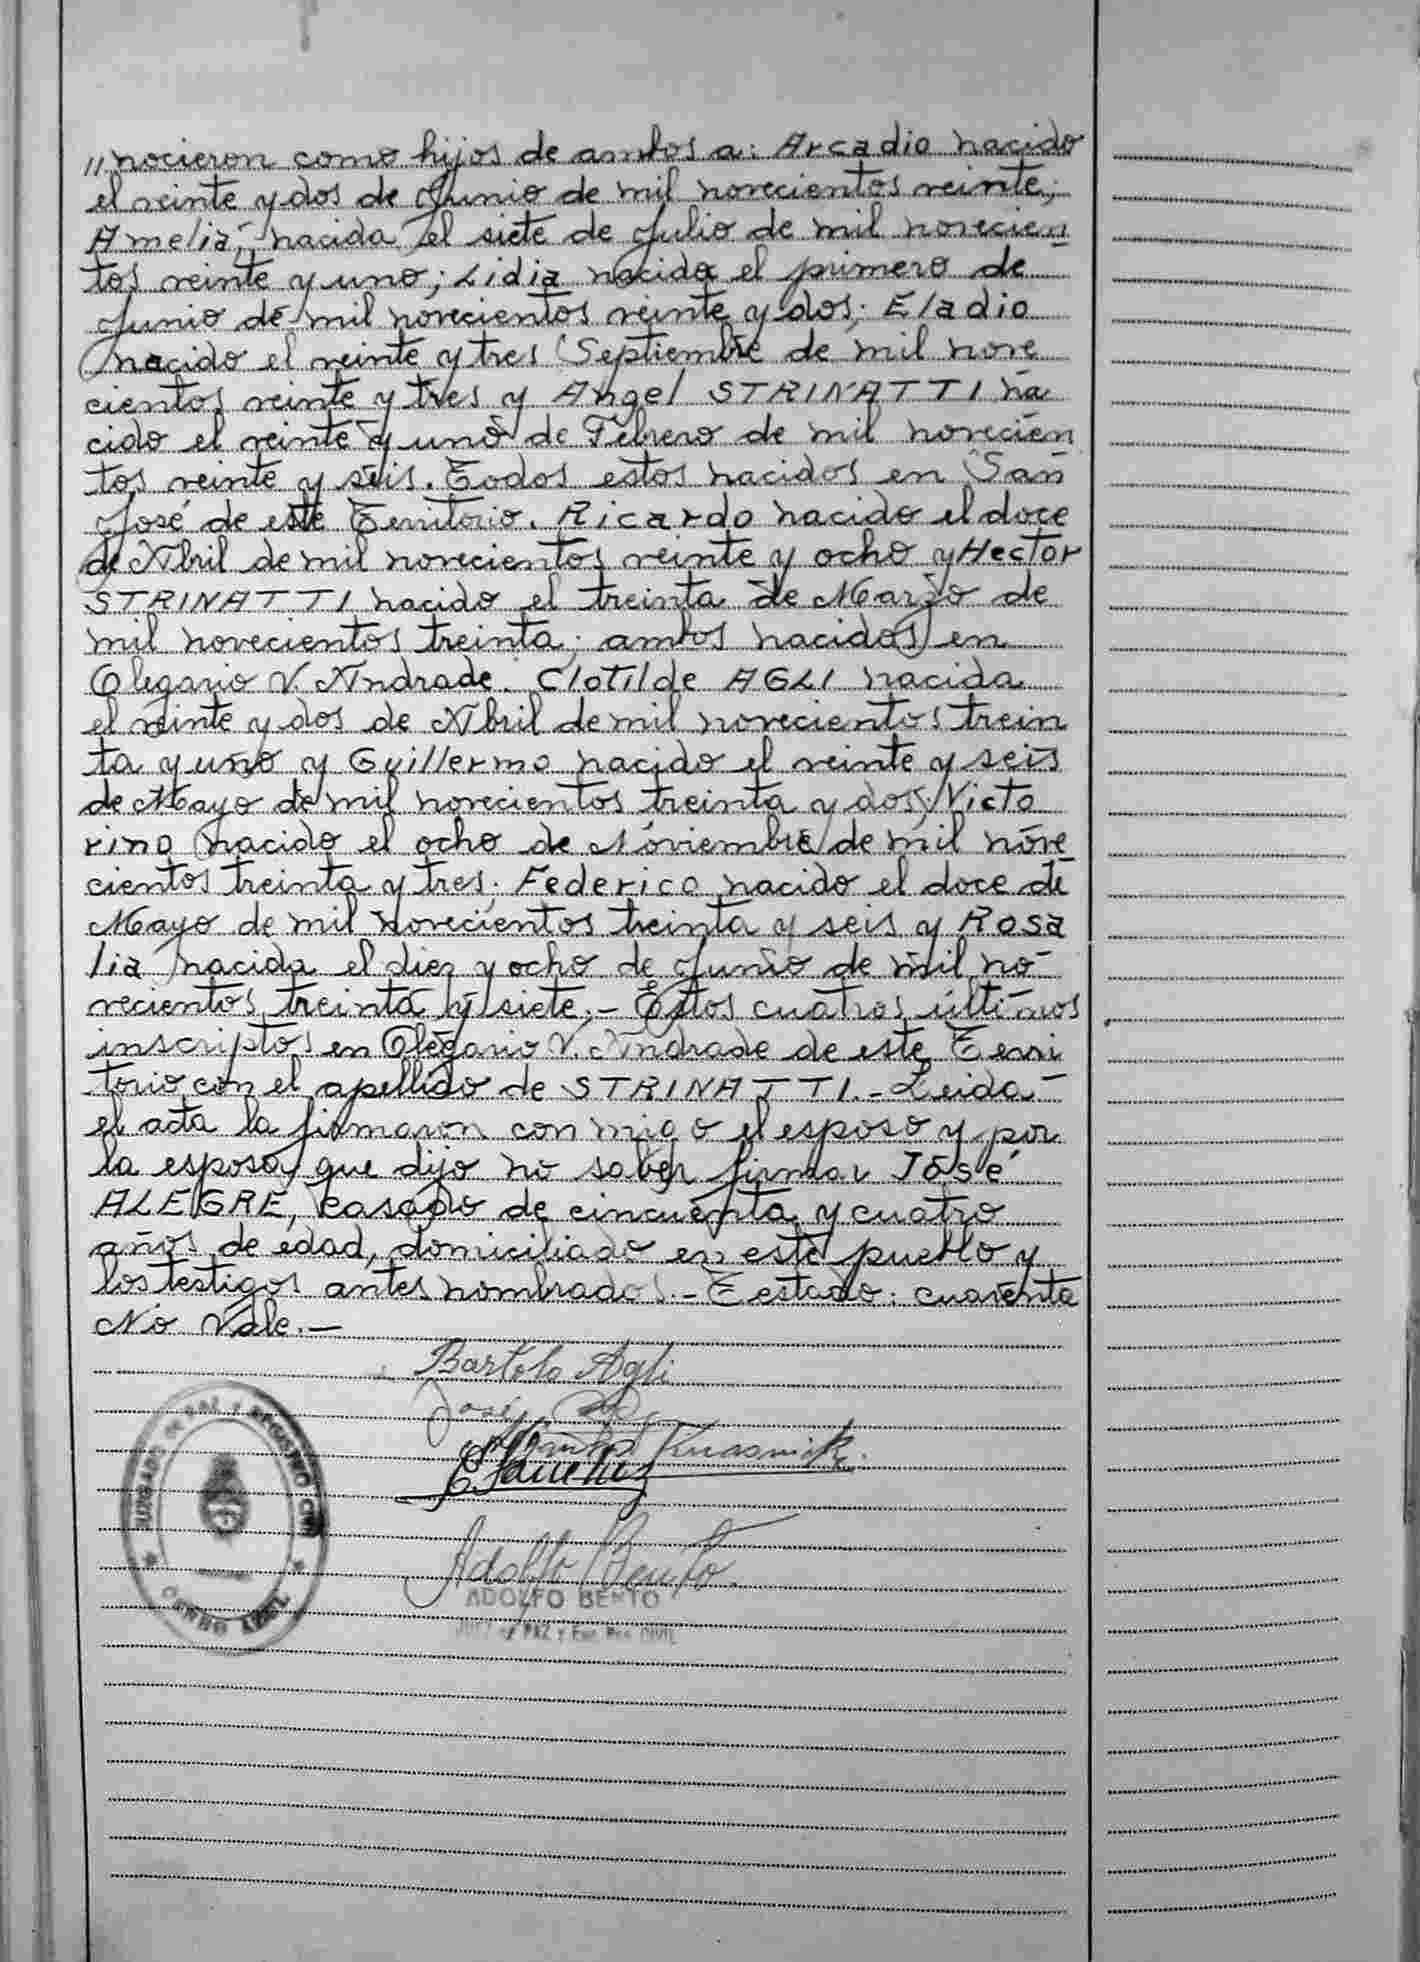 "nocieron como hijos de ambos a: Arcadio nacido
el veinte y dos de Junio de mil novecientos veinte;
Amelia, nacida el siete de Julio de mil novecien
tos veinte y uno; Lidia nacida el primero de
Junio de mil novecientos veinte y dos; Eladio
nacido el veinte y tres Septiembre de mil nove
cientos veinte y tres y Angel STRINATTI na
cido el veinte y uno de Febrero de mil novecien
tos veinte y seis. Todos estos nacidos en San
José de este Territorio. Ricardo nacido el doce
de Abril de mil novecientos veinte y ocho y Hector
STRINATTI nacido el treinta de Marzo de
mil novecientos treinta; ambos nacidos en
Olegario V. Andrade. Clotilde AGLI nacida
el veinte y dos de Abril de mil novecientos trein
ta y uno y Guillermo nacido el veinte y seis
de Mayo de mil novecientos treinta y dos; Victo
rino nacido el ocho de Noviembre de mil nove
cientos treinta y tres; Federico nacido el doce de
Mayo de mil novecientos treinta y seis y Rosa
lia nacida el diez y ocho de Junio de mil no
vecientos treinta y siete.- Estos cuatros últimos
inscriptos en Olegario V. Andrade de este Terri
torio con el apellido de STRINATTI.- Leida
el acta la firmaron con migo el esposo y por
la esposa, que dijo no saber firmar José
ALEGRE, casado de cincuenta y cuatro
años de edad, domiciliado en este pueblo y
los testigos antes nombrados.- Testado: cuarenta
No Vale.-
Bartolo Agli
José
E. Sanchez
Adolfo Bento
ADOLFO BENTO
JUEZ de PAZ y Enc. Reg. CIVIL
JUZGADO DE PAZ Y REGISTRO CIVIL